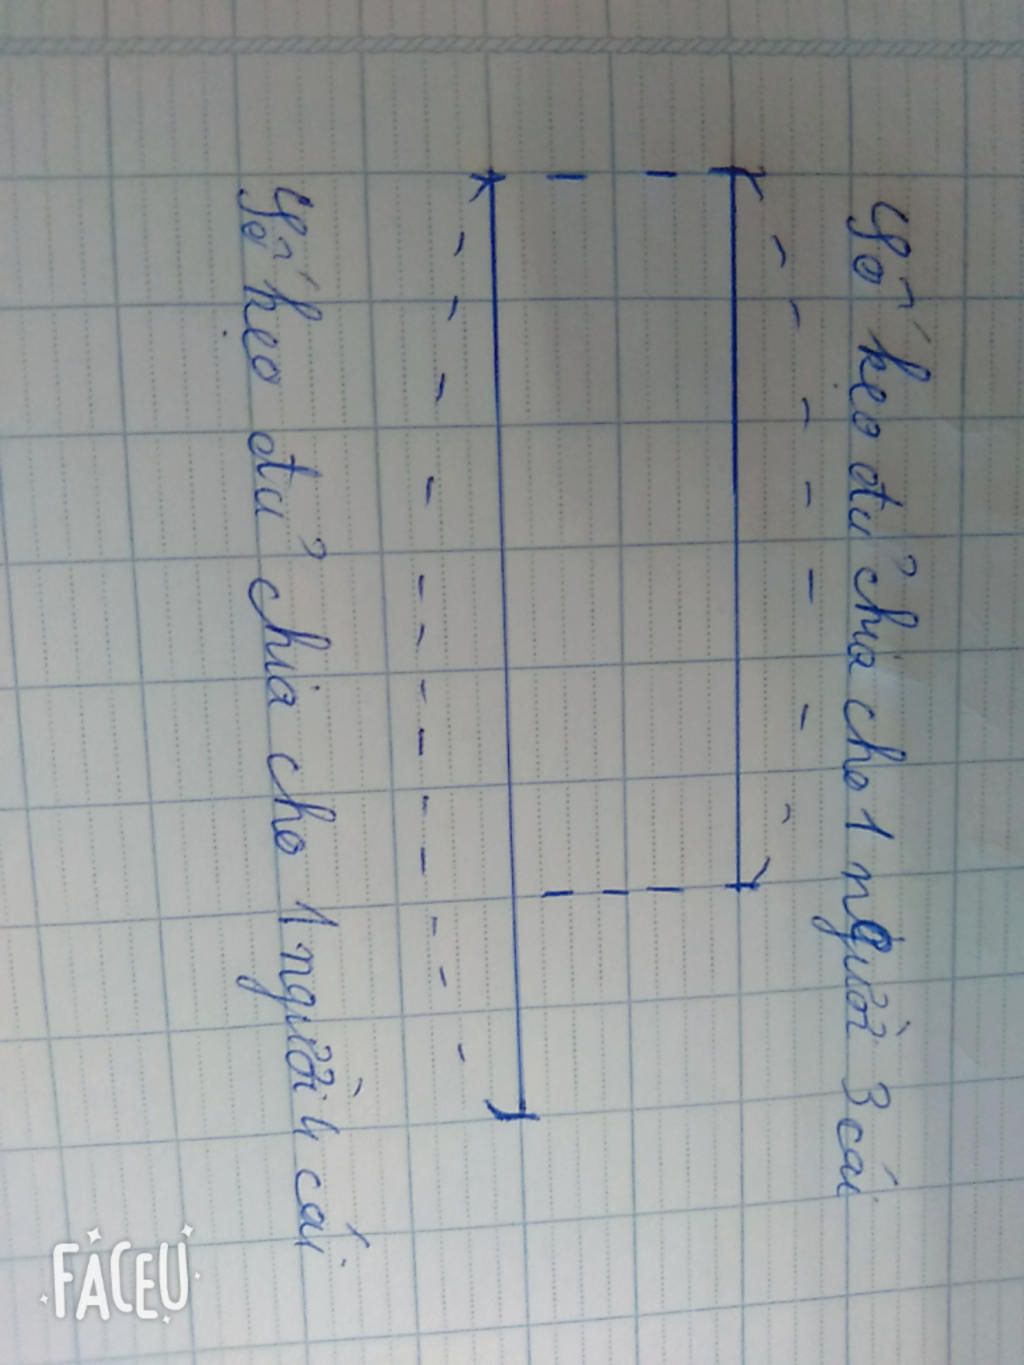 Số kẹo đủ chia cho 1 người 3 cái
Số kẹo đủ chia cho 1 người 4 cái
FACEU